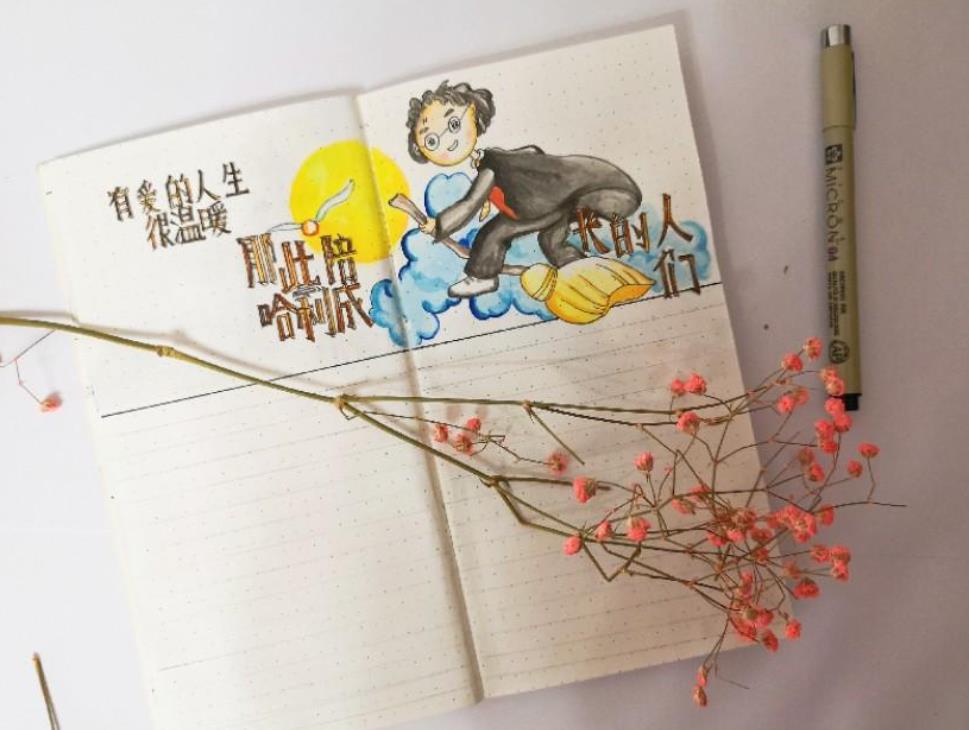 有爱的人生
很温暖
那些陪
哈利成
长的人
们
MICRON 04